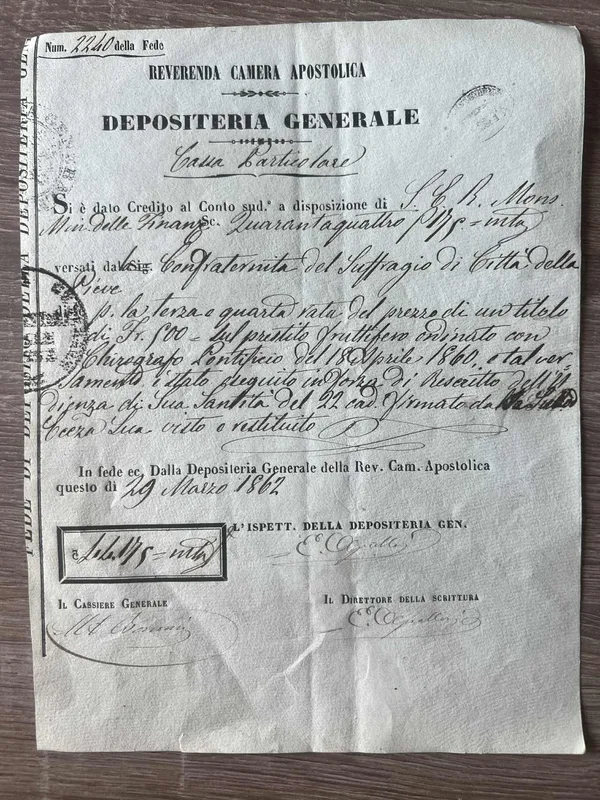 Num. 2240 della Fede
REVERENDA CAMERA APOSTOLICA
DEPOSITERIA GENERALE
Cassa Particolare
Si è dato Credito al Conto sud.º a disposizione di S. E. R. Mons.
Min. delle Finanz Sc. Quarantaquattro
versati dal Sig. Confraternita del Suffragio di Città della
Pieve
p. la terza e quarta rata del prezzo di un titolo
di Fr. 500 = sul prestito fruttifero ordinato con
Chirografo Pontificio del 18 Aprile 1860. e tal ver-
samento è stato eseguito in forza di Rescritto dell'U-
dienza di Sua Santità del 22 cad. firmato da
Ecc.za Sua visto e restituito
In fede ec. Dalla Depositeria Generale della Rev. Cam. Apostolica
questo di 29 Marzo 1862
L'ISPETT. DELLA DEPOSITERIA GEN.
IL CASSIERE GENERALE
IL DIRETTORE DELLA SCRITTURA
FEDE DI DEPOSITERIA GEN